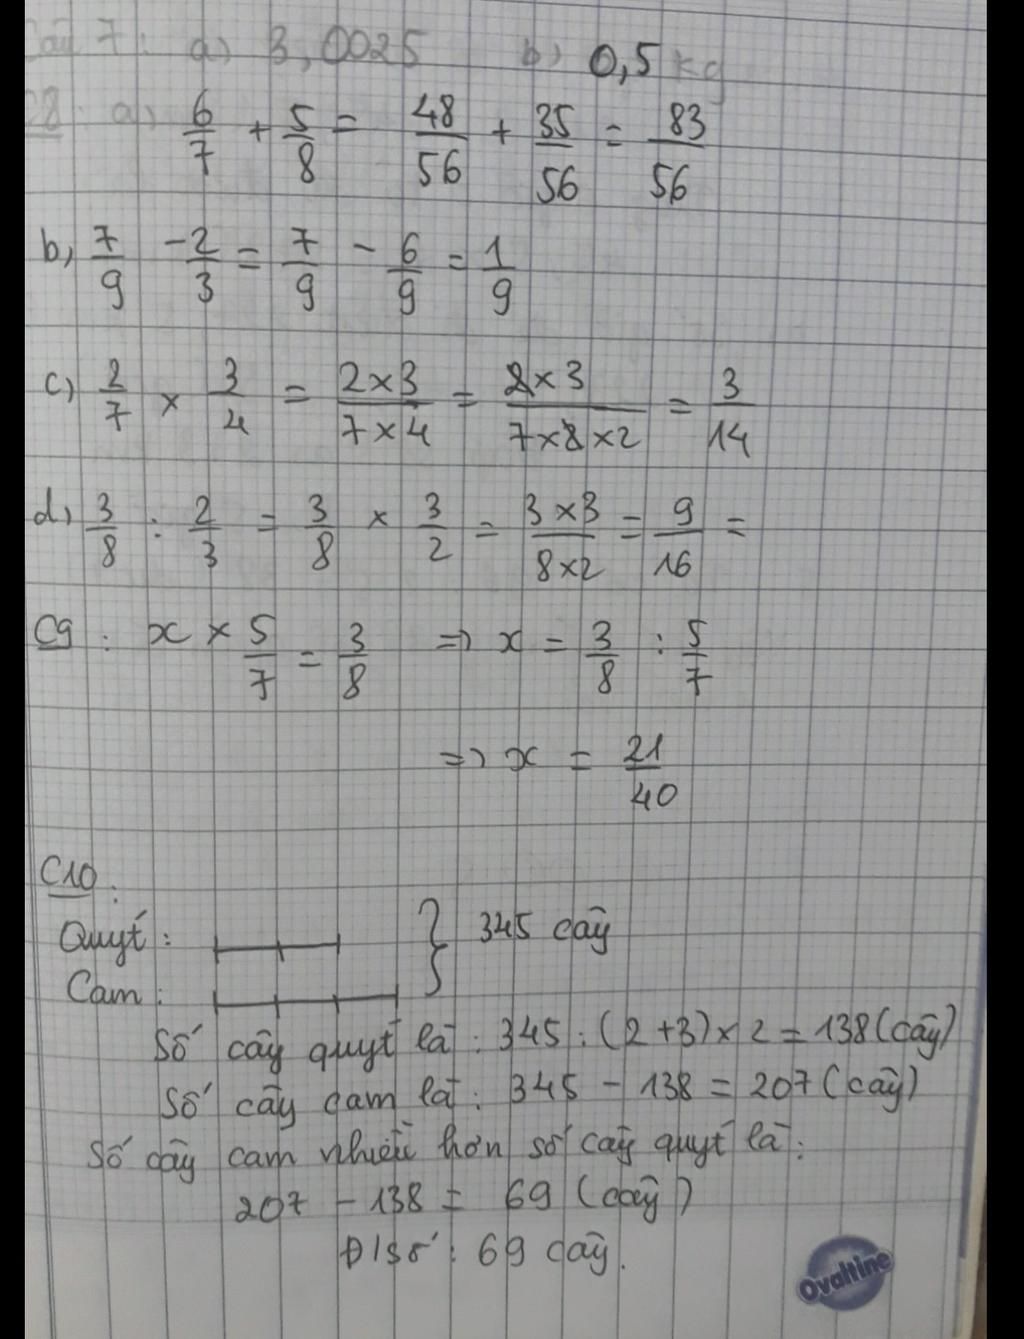 Câu 7: a) 3,0025 b) 0,5 kg
C8: a) 6/7 + 5/8 = 48/56 + 35/56 = 83/56
b, 7/9 - 2/3 = 7/9 - 6/9 = 1/9
c) 2/7 × 3/4 = 2×3/7×4 = 2×3/7×2×2 = 3/14
d, 3/8 : 2/3 = 3/8 × 3/2 = 3×3/8×2 = 9/16 =
C9: x × 5/7 = 3/8 => x = 3/8 : 5/7
=> x = 21/40
C10:
Quýt: } 345 cây
Cam:
Số cây quýt là: 345 : (2+3) × 2 = 138 (cây)
Số cây cam là: 345 - 138 = 207 (cây)
Số cây cam nhiều hơn số cây quýt là:
207 - 138 = 69 (cây)
Đ/số: 69 cây.
Ovaltine